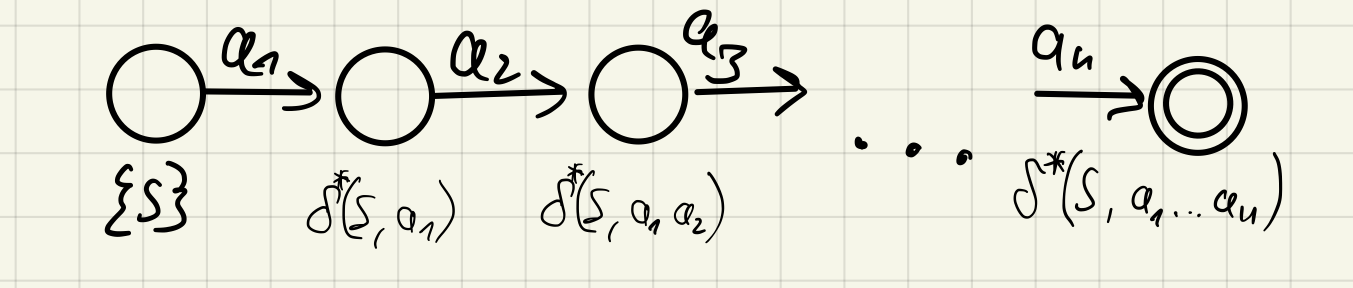 a₁ a₂ a₃ aₙ
. . .
{S} δ*(S, a₁) δ*(S, a₁ a₂) δ*(S, a₁...aₙ)